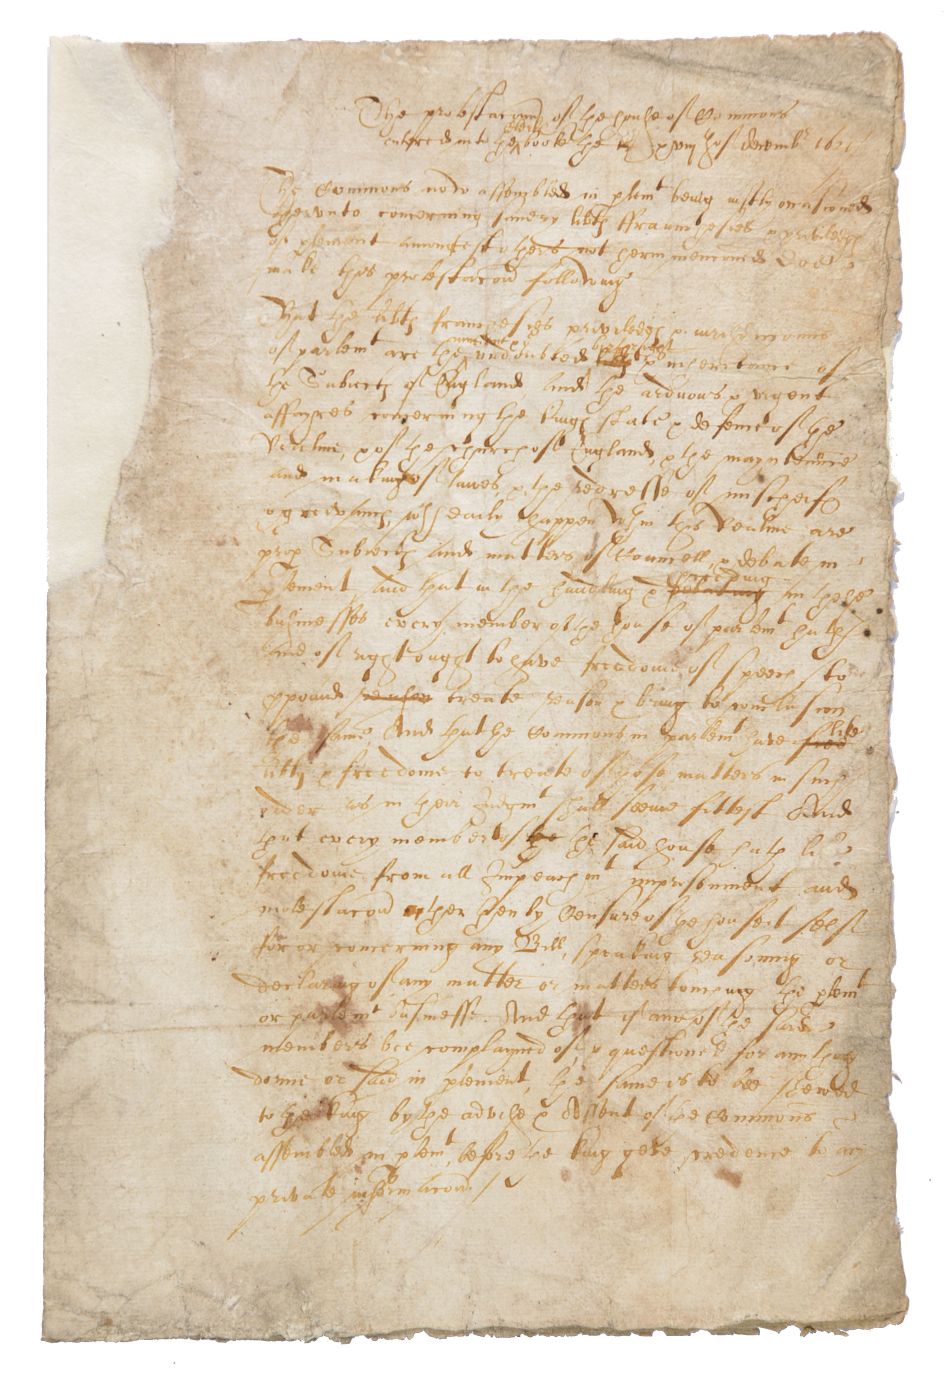 The protestacion of the house of Commons
entred into the Clerks booke the xviij of decemb 1621
The Commons now assembled in plemt being iustly occasioned
therevnto concerning sundry libtis ffraunchesies & priviledges
of plement amongest others not herin mencioned doe
make this protestacon following
That the libtis franchesies priviledges & iurisdiccons
of parlemt are the auncient & vndoubted birthright & inheritance of
the Subiects of England And the arduous & vrgent
affayres concerning the king state & defence of the
Realme, & of the church of England, & the mayntenance
and making of lawes, & the redresse of mischeifs
& grevances wch dayly happen wthin this Realme are
prop Subiects and matters of Counsell, & debate in
plement, And that in the handling & debating proceeding in these
businesses every member of the house of parlemt hath
and of right ought to have freedome of speech to
ppound treate reason & bring to conclusion
the same And that the Commons in parlemt have like free
libty & freedome to treate of those matters in such
order as in their Judgmt shall seeme fittest And
that every member of the said house hath like
freedome from all Impeachmt imprisonment and
molestacon other then by Censure of the house it self
for or concerning any Bill, speaking reasoning or
declaring of any matter or matters touching the plemt
or parlemt businesse. And that if any of the said
members bee complayned of & questioned for any thing
donne or said in plement, the same is to bee shewed
to the king by the advise & assent of the Commons
assembled in plemt, before the king geve credence to any
private informacon.